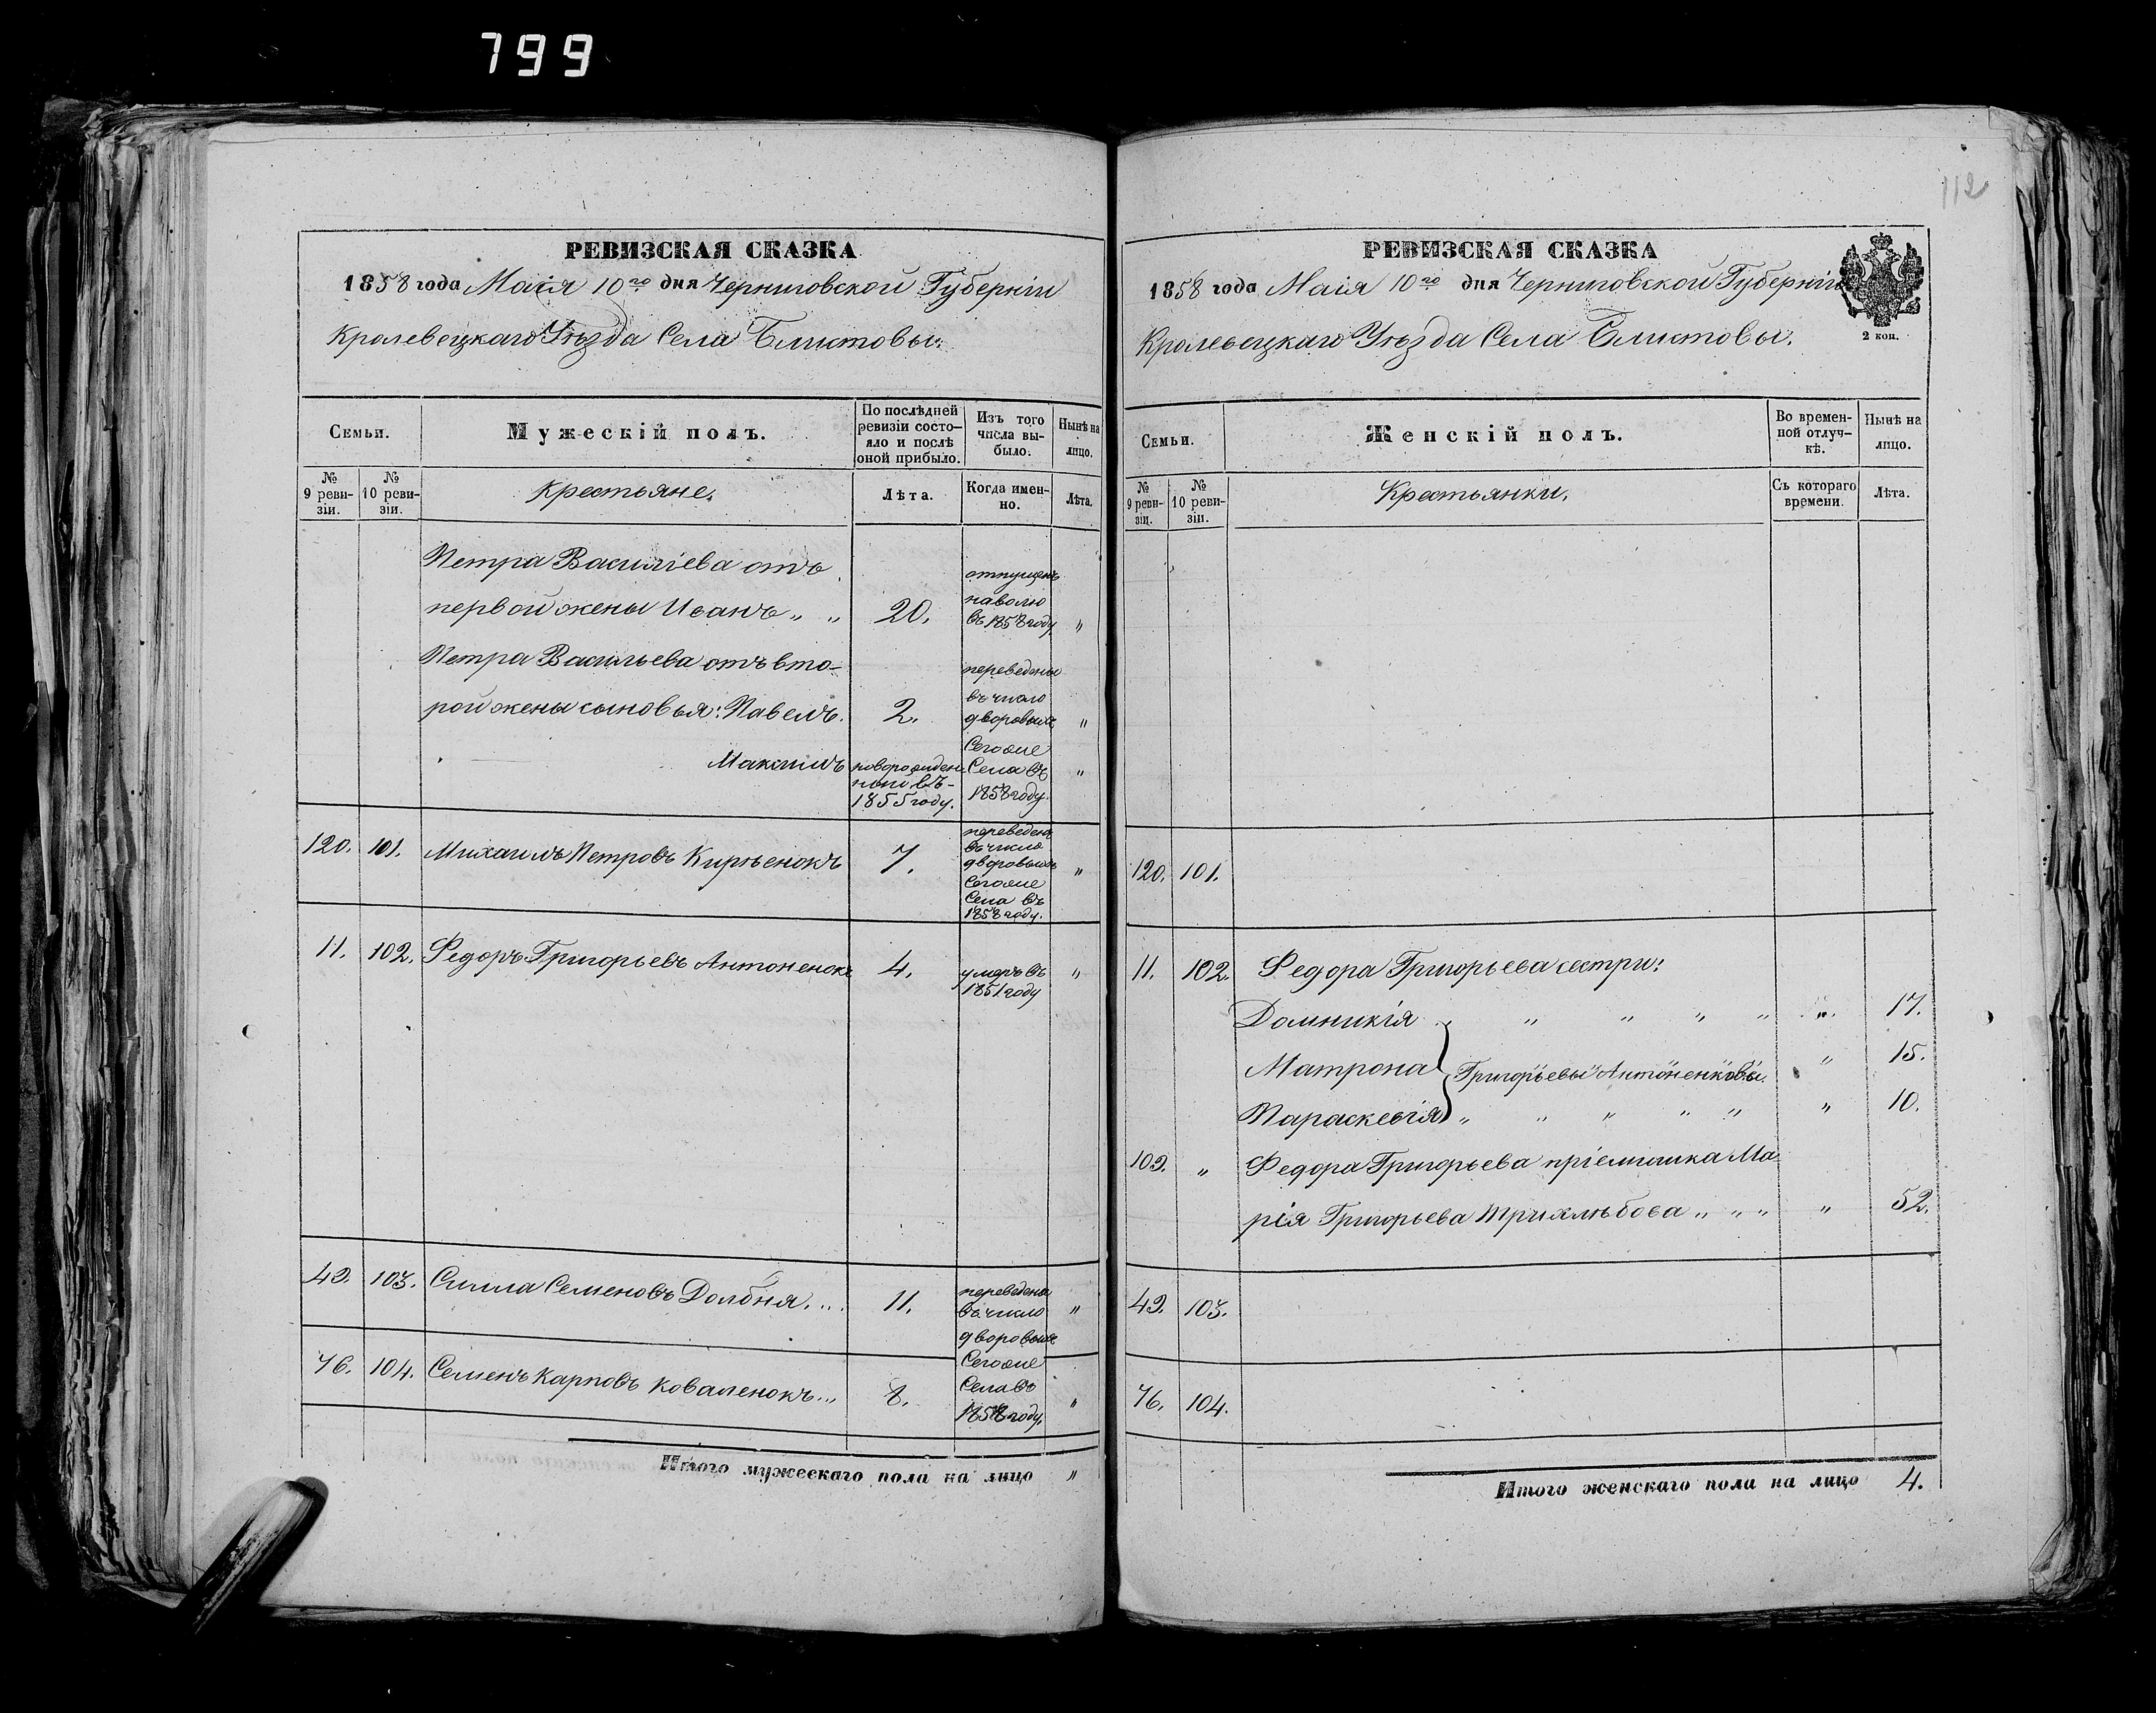 799
112
РЕВИЗСКАЯ СКАЗКА
1858 года Маія 10го дня Черниговской Губерніи
Кролевецкаго Уѣзда Села Блистовы.
Семьи.
Мужескій полъ.
По послѣдней ревизіи состо-
яло и послѣ
оной прибыло.
Изъ того
числа вы-
было.
Нынѣ на
лицо.
№
9 реви-
зіи.
№
10 реви-
зіи.
Крестьяне.
Лѣта.
Когда имен-
но.
Лѣта.
Петра Василіева отъ
первой жены Иванъ „ „
20.
отпущенъ
наволю
въ 1858 году
„
Петра Васильева отъ вто-
рой жены сыновья: Павелъ.
2.
переведены
въ число
дворовыхъ
„
Максимъ
новорожден-
ной въ
1855 году.
Сегоже
Села въ
1858 году.
„
120. 101. Михаилъ Петровъ Кирѣенокъ
7.
переведенъ
въ число
дворовыхъ
Сегоже
Села въ
1858 году.
„
11. 102. Федоръ Григорьевъ Антоненокъ
4.
умеръ въ
1851 году
„
42. 103. Силла Семеновъ Долбня...
11.
переведены
въ число
дворовыхъ
„
76. 104. Семенъ Карповъ Коваленокъ...
8.
Сегоже
Села въ
1858 году.
„
Итого мужескаго пола на лицо „
РЕВИЗСКАЯ СКАЗКА
1858 года Маія 10го дня Черниговской Губерніи
Кролевецкаго Уѣзда Села Блистовы.
2 коп.
Семьи.
Женскій полъ.
Во времен-
ной отлуч-
кѣ.
Нынѣ на
лицо.
№
9 реви-
зіи.
№
10 реви-
зіи.
Крестьянки.
Съ котораго
времени.
Лѣта.
120. 101.
11. 102. Федора Григорьева сестри:
Домникія „ „ „ „ „ „ 17.
Матрона } Григорьевы Антоненковы. „ 15.
Параскевія „ „ „ „ „ „ 10.
102. „ Федора Григорьева пріемишка Ма-
рія Григорьева Трихлѣбова „ „ „ „ 52.
42. 103.
76. 104.
Итого женскаго пола на лицо 4.